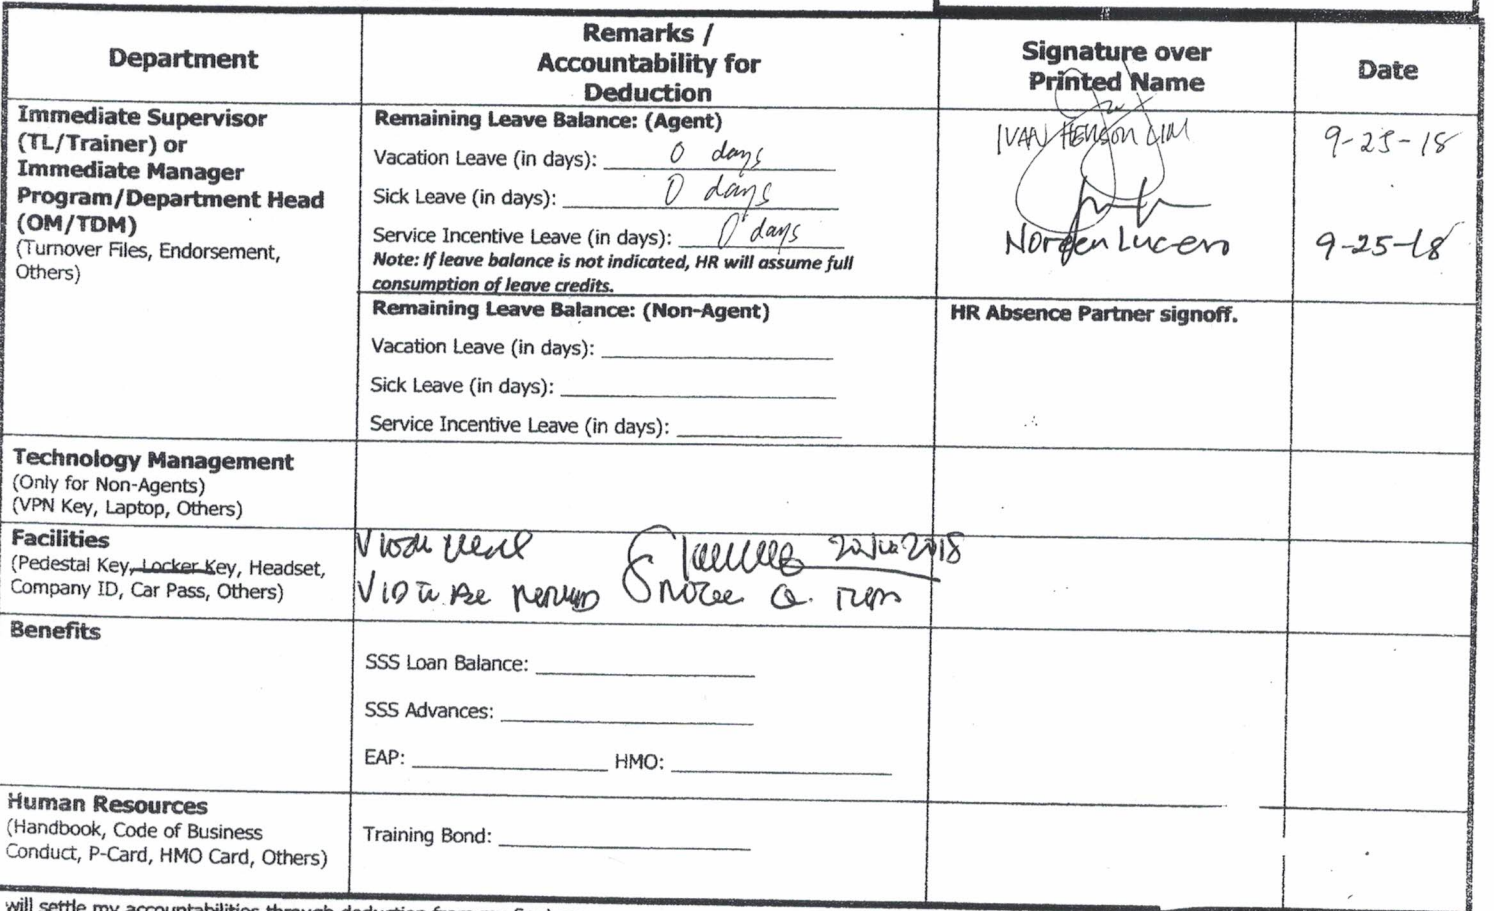 Department
Remarks /
Accountability for
Deduction
Signature over
Printed Name
Date
Immediate Supervisor
(TL/Trainer) or
Immediate Manager
Program/Department Head
(OM/TDM)
(Turnover Files, Endorsement,
Others)
Remaining Leave Balance: (Agent)
Vacation Leave (in days): 0 days
Sick Leave (in days): 0 days
Service Incentive Leave (in days): 0 days
Note: If leave balance is not indicated, HR will assume full
consumption of leave credits.
IVAN HENSON LIM
9-25-18
Norden Lucero
9-25-18
Remaining Leave Balance: (Non-Agent)
Vacation Leave (in days):
Sick Leave (in days):
Service Incentive Leave (in days):
HR Absence Partner signoff.
Technology Management
(Only for Non-Agents)
(VPN Key, Laptop, Others)
Facilities
(Pedestal Key, Locker Key, Headset,
Company ID, Car Pass, Others)
2018
Benefits
SSS Loan Balance:
SSS Advances:
EAP: HMO:
Human Resources
(Handbook, Code of Business
Conduct, P-Card, HMO Card, Others)
Training Bond:
will settle my accountabilities through deduction from my